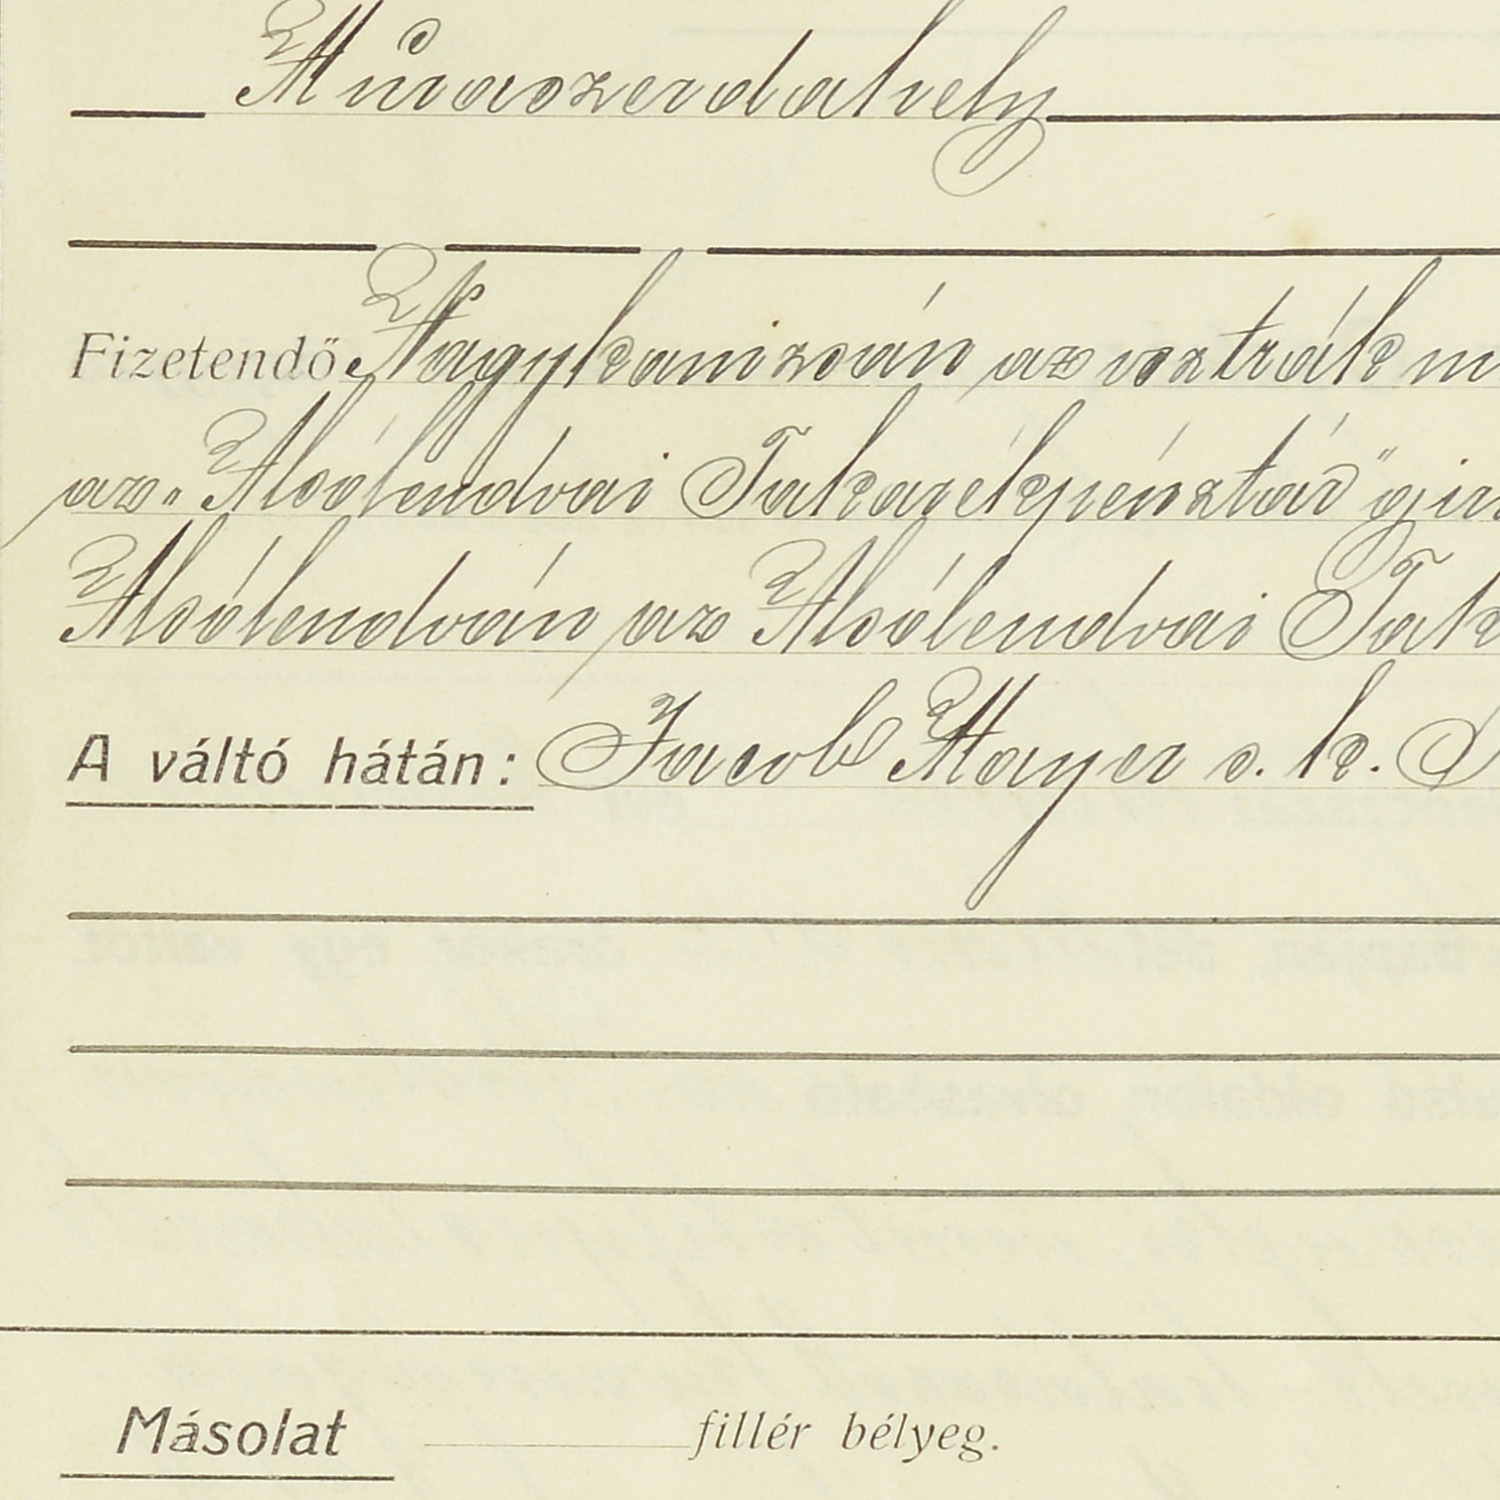 Muraszerdahely
Fizetendő Nagykanizsán az osztrák m
az "Alsólendvai Takarékpénztár" gir
Alsólendván az Alsólendvai Tak
A váltó hátán: Jacob Mayer s. k.
Másolat fillér bélyeg.